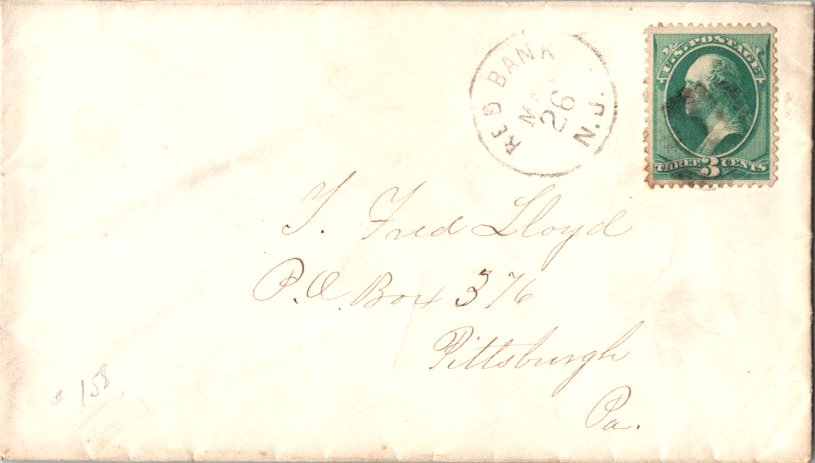 RED BANK
26
N.J.
U.S. POSTAGE
THREE 3 CENTS
J. Fred Lloyd
P.O. Box 376
Pittsburgh
Pa.
158